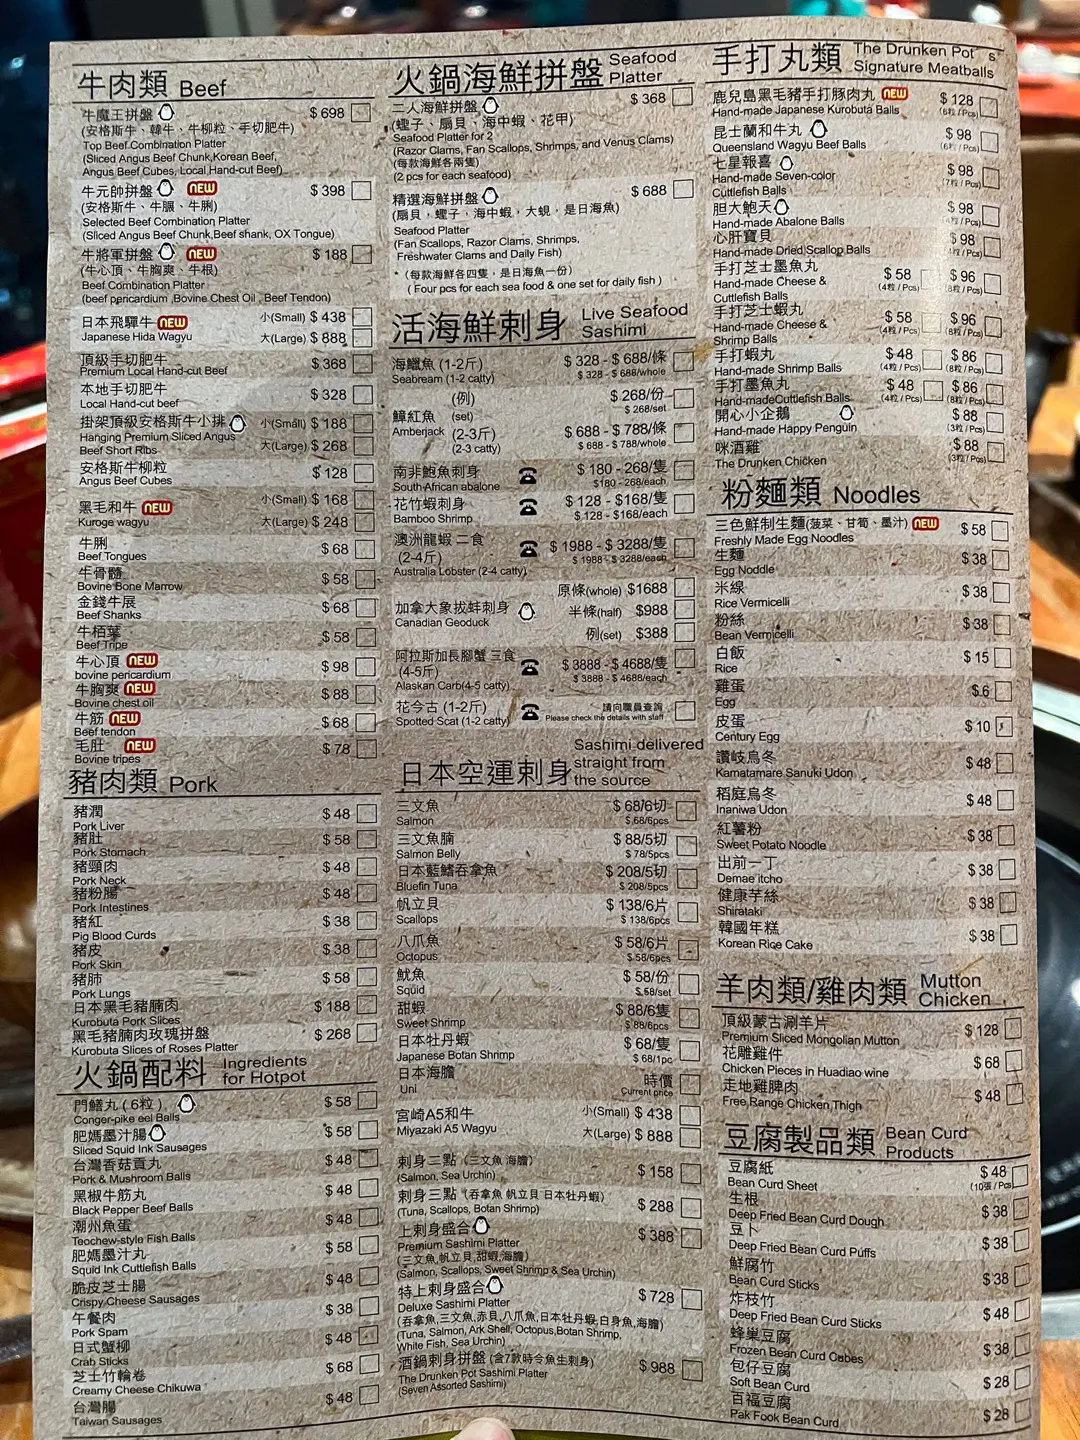 牛肉類 Beef
牛魔王拼盤 $698
(安格斯牛、韓牛、牛柳粒、手切肥牛)
Top Beef Combination Platter
(Sliced Angus Beef Chunk,Korean Beef,
Angus Beef Cubes, Local Hand-cut Beef)
牛元帥拼盤 NEW $398
(安格斯牛、牛𦟌、牛脷)
Selected Beef Combination Platter
(Sliced Angus Beef Chunk,Beef shank, OX Tongue)
牛將軍拼盤 NEW $188
(牛心頂、牛胸爽、牛根)
Beef Combination Platter
(beef pericardium ,Bovine Chest Oil , Beef Tendon)
日本飛驒牛 NEW 小(Small) $438
Japanese Hida Wagyu 大(Large) $888
頂級手切肥牛 $368
Premium Local Hand-cut Beef
本地手切肥牛 $328
Local Hand-cut beef
掛架頂級安格斯牛小排 小(Small) $188
Hanging Premium Sliced Angus
Beef Short Ribs 大(Large) $268
安格斯牛柳粒 $128
Angus Beef Cubes
黑毛和牛 NEW 小(Small) $168
Kuroge wagyu 大(Large) $248
牛脷 $68
Beef Tongues
牛骨髓 $58
Bovine Bone Marrow
金錢牛展 $68
Beef Shanks
牛栢葉 $58
Beef Tripe
牛心頂 NEW $98
bovine pericardium
牛胸爽 NEW $88
Bovine chest oil
牛筋 NEW $68
Beef tendon
毛肚 NEW $78
Bovine tripes
豬肉類 Pork
豬潤 $48
Pork Liver
豬肚 $58
Pork Stomach
豬頸肉 $48
Pork Neck
豬粉腸 $48
Pork Intestines
豬紅 $38
Pig Blood Curds
豬皮 $38
Pork Skin
豬肺 $58
Pork Lungs
日本黑毛豬腩肉 $188
Kurobuta Pork Slices
黑毛豬腩肉玫瑰拼盤 $268
Kurobuta Slices of Roses Platter
火鍋配料 Ingredients
for Hotpot
門鱔丸 ( 6粒 ) $58
Conger-pike eel Balls
肥媽墨汁腸 $58
Sliced Squid Ink Sausages
台灣香菇貢丸 $48
Pork & Mushroom Balls
黑椒牛筋丸 $48
Black Pepper Beef Balls
潮州魚蛋 $48
Teochew-style Fish Balls
肥媽墨汁丸 $58
Squid Ink Cuttlefish Balls
脆皮芝士腸 $48
Crispy Cheese Sausages
午餐肉 $38
Pork Spam
日式蟹柳 $48
Crab Sticks
芝士竹輪卷 $68
Creamy Cheese Chikuwa
台灣腸 $48
Taiwan Sausages
火鍋海鮮拼盤 Seafood
Platter
二人海鮮拼盤 $368
(蟶子、扇貝、海中蝦、花甲)
Seafood Platter for 2
(Razor Clams, Fan Scallops, Shrimps, and Venus Clams)
(每款海鮮各兩隻)
(2 pcs for each seafood)
精選海鮮拼盤 $688
(扇貝，蟶子，海中蝦，大蜆，是日海魚)
Seafood Platter
(Fan Scallops, Razor Clams, Shrimps,
Freshwater Clams and Daily Fish)
*（每款海鮮各四隻，是日海魚一份）
( Four pcs for each sea food & one set for daily fish )
活海鮮刺身 Live Seafood
Sashimi
海鱲魚 (1-2斤) $328 - $688/條
Seabream (1-2 catty) $328 - $688/whole
(例) $268/份
(set) $268/set
鱆紅魚
Amberjack (2-3斤) $688 - $788/條
(2-3 catty) $688 - $788/whole
南非鮑魚刺身 $180 - 268/隻
South African abalone $180 - 268/each
花竹蝦刺身 $128 - $168/隻
Bamboo Shrimp $128 - $168/each
澳洲龍蝦 二食 $1988 - $3288/隻
(2-4斤) $1988 - $3288/each
Australia Lobster (2-4 catty)
原條(whole) $1688
加拿大象拔蚌刺身 半條(half) $988
Canadian Geoduck
例(set) $388
阿拉斯加長腳蟹 三食 $3888 - $4688/隻
(4-5斤) $3888 - $4688/each
Alaskan Carb(4-5 catty)
花今古 (1-2斤) 請向職員查詢
Spotted Scat (1-2 catty) Please check the details with staff
日本空運刺身 Sashimi delivered
straight from
the source
三文魚 $68/6切
Salmon $68/6pcs
三文魚腩 $88/5切
Salmon Belly $78/5pcs
日本藍鰭吞拿魚 $208/5切
Bluefin Tuna $208/5pcs
帆立貝 $138/6片
Scallops $138/6pcs
八爪魚 $58/6片
Octopus $58/6pcs
魷魚 $58/份
Squid $58/set
甜蝦 $88/6隻
Sweet Shrimp $88/6pcs
日本牡丹蝦 $68/隻
Japanese Botan Shrimp $68/1pc
日本海膽 時價
Uni Current price
宮崎A5和牛 小(Small) $438
Miyazaki A5 Wagyu 大(Large) $888
刺身三點（三文魚 海膽） $158
(Salmon, Sea Urchin)
刺身三點（吞拿魚 帆立貝 日本牡丹蝦） $288
(Tuna, Scallops, Botan Shrimp)
上刺身盛合 $388
Premium Sashimi Platter
(三文魚,帆立貝,甜蝦,海膽)
(Salmon, Scallops, Sweet Shrimp & Sea Urchin)
特上刺身盛合 $728
Deluxe Sashimi Platter
(吞拿魚,三文魚,赤貝,八爪魚,日本牡丹蝦,白身魚,海膽)
(Tuna, Salmon, Ark Shell, Octopus,Botan Shrimp,
White Fish, Sea Urchin)
酒鍋刺身拼盤 (含7款時令魚生刺身) $988
The Drunken Pot Sashimi Platter
(Seven Assorted Sashimi)
手打丸類 The Drunken Pot's
Signature Meatballs
鹿兒島黑毛豬手打豚肉丸 NEW $128
Hand-made Japanese Kurobuta Balls (6粒 / Pcs)
昆士蘭和牛丸 $98
Queensland Wagyu Beef Balls (6粒 / Pcs)
七星報喜 $98
Hand-made Seven-color (7粒 / Pcs)
Cuttlefish Balls
胆大鮑天 $98
Hand-made Abalone Balls
心肝寶貝 $98
Hand-made Dried Scallop Balls (4粒 / Pcs)
手打芝士墨魚丸 $58 $96
Hand-made Cheese & (4粒 / Pcs) (8粒 / Pcs)
Cuttlefish Balls
手打芝士蝦丸 $58 $96
Hand-made Cheese & (4粒 / Pcs) (8粒 / Pcs)
Shrimp Balls
手打蝦丸 $48 $86
Hand-made Shrimp Balls (4粒 / Pcs) (8粒 / Pcs)
手打墨魚丸 $48 $86
Hand-madeCuttlefish Balls (4粒 / Pcs) (8粒 / Pcs)
開心小企鵝 $88
Hand-made Happy Penguin (3粒 / Pcs)
咪酒雞 $88
The Drunken Chicken (3粒 / Pcs)
粉麵類 Noodles
三色鮮制生麵(菠菜、甘筍、墨汁) NEW $58
Freshly Made Egg Noodles
生麵 $38
Egg Noddle
米線 $38
Rice Vermicelli
粉絲 $38
Bean Vermicelli
白飯 $15
Rice
雞蛋 $6
Egg
皮蛋 $10
Century Egg
讚岐烏冬 $48
Kamatamare Sanuki Udon
稻庭烏冬 $48
Inaniwa Udon
紅薯粉 $38
Sweet Potato Noodle
出前一丁 $38
Demae itcho
健康芋絲 $38
Shirataki
韓國年糕 $38
Korean Rice Cake
羊肉類/雞肉類 Mutton
Chicken
頂級蒙古涮羊片 $128
Premium Sliced Mongolian Mutton
花雕雞件 $68
Chicken Pieces in Huadiao wine
走地雞脾肉 $48
Free Range Chicken Thigh
豆腐製品類 Bean Curd
Products
豆腐紙 $48
Bean Curd Sheet (10張 / Pcs)
生根 $38
Deep Fried Bean Curd Dough
豆卜 $38
Deep Fried Bean Curd Puffs
鮮腐竹 $38
Bean Curd Sticks
炸枝竹 $48
Deep Fried Bean Curd Sticks
蜂巢豆腐 $38
Frozen Bean Curd Cubes
包仔豆腐 $28
Soft Bean Curd
百福豆腐 $28
Pak Fook Bean Curd